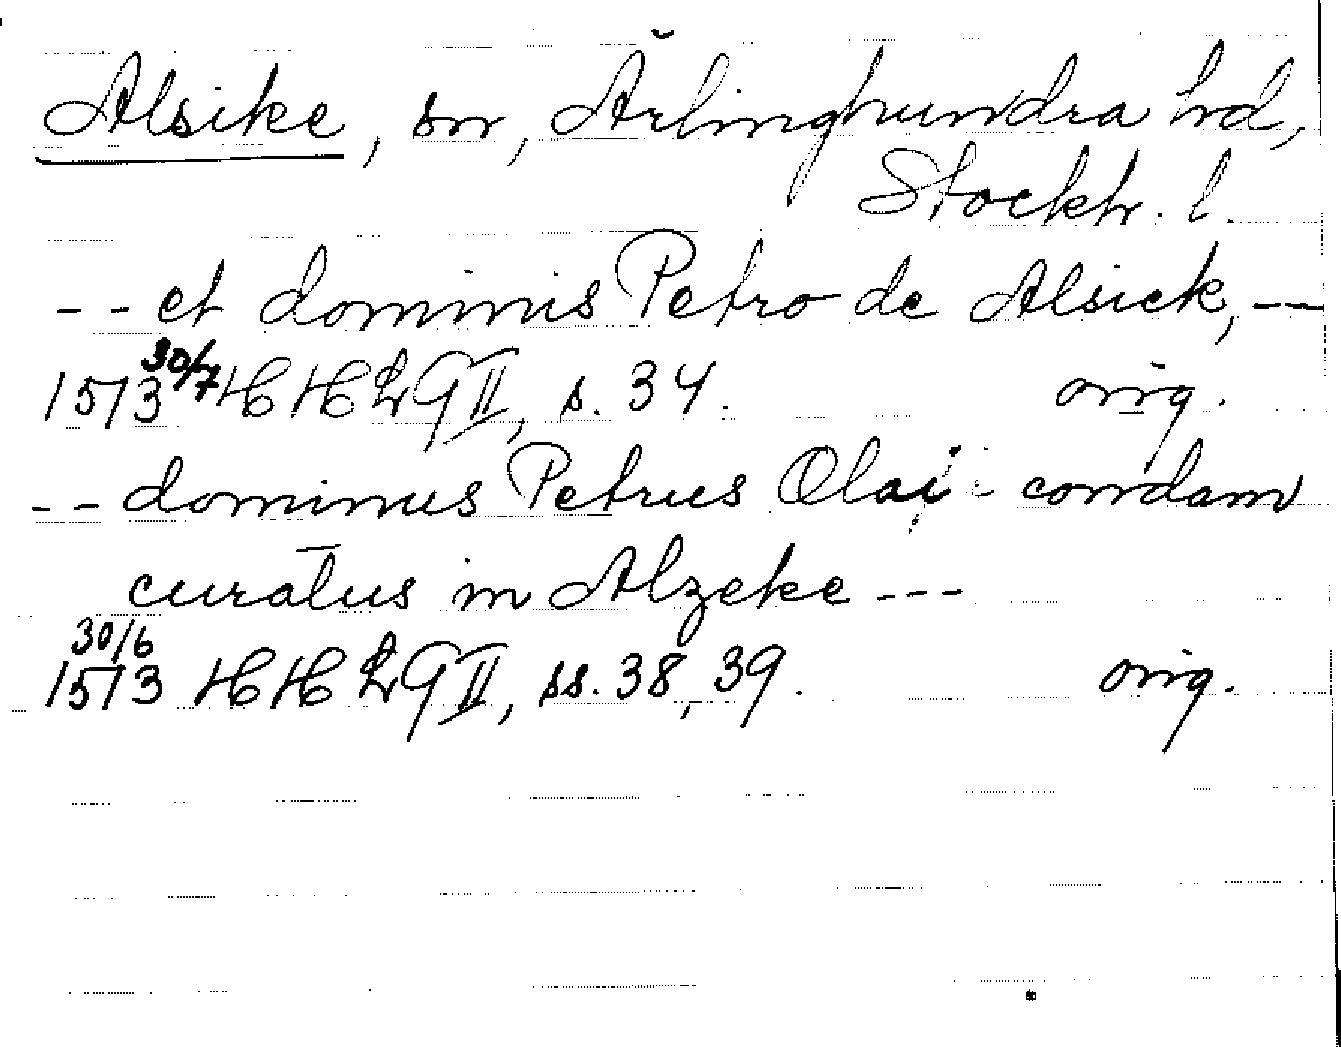 Alsike, sn, Ärlinghundra hd,
Stockh. l.
-- et dominis Petro de Alsick, --
1513 30/7 HHLG II, s. 34. orig.
-- dominus Petrus Olai - condam
curatus in Alzeke ---
30/6
1513 HHLG II, ss. 38, 39. orig.